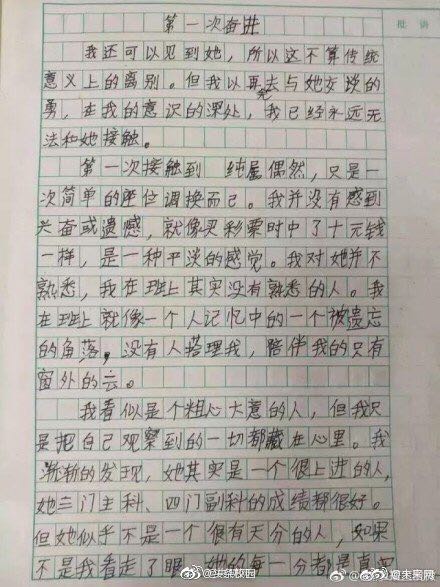 第一次奋进
我还可以见到她，所以这不算传统
意义上的离别。但我以失去与她交谈的
勇，在我的意识的深处，我已经永远无
法和她接触。
第一次接触到 纯属偶然，只是一
次简单的座位调换而已。我并没有感到
兴奋或遗憾，就像买彩票时中了十元钱
一样，是一种平淡的感觉。我对她并不
熟悉，我在班上其实没有熟悉的人。我
在班上就像一个人记忆中的一个被遗忘
的角落，没有人搭理我，陪伴我的只有
窗外的云。
我看似是个粗心大意的人，但我只
是把自己观察到的一切都藏在心里。我
渐渐的发现，她其实是一个很上进的人，
她三门主科、四门副科的成绩都很好。
但她似乎不是一个很有天分的人，如果
不是我看走了眼，每一分都是